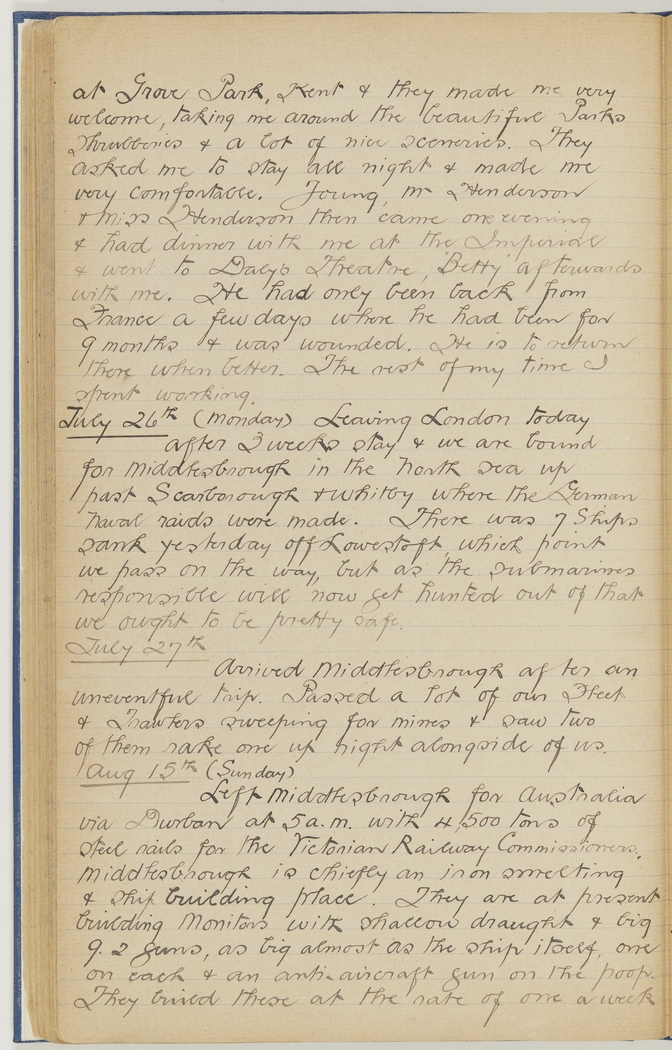 at Grove Park, Kent & they made me very
welcome, taking me around the beautiful Parks
Shrubberies & a lot of nice sceneries. They
asked me to stay all night & made me
very comfortable. Young, Mr Henderson
& Miss Henderson then came one evening
& had dinner with me at the Imperial
& went to Daly's Theatre, "Betty" afterwards
with me. He had only been back from
France a few days where he had been for
9 months & was wounded. He is to return
there when better. The rest of my time I
spent working.
July 26th (Monday) Leaving London today
after 3 weeks stay & we are bound
for Middlesbrough in the North Sea up
past Scarborough & Whitby where the German
Naval raids were made. There was 7 Ships
sank yesterday off Lowestoft, which point
we pass on the way, but as the submarines
responsible will now get hunted out of that
we ought to be pretty safe.
July 27th
Arrived Middlesbrough after an
uneventful trip. Passed a lot of our Fleet
& Trawlers sweeping for mines & saw two
of them rake one up right alongside of us.
Aug 15th (Sunday)
Left Middlesbrough for Australia
via Durban at 5 a.m. with 4,500 tons of
steel rails for the Victorian Railway Commissioners.
Middlesbrough is chiefly an iron smelting
& ship building place. They are at present
building Monitors with shallow draught & big
9.2 guns, as big almost as the ship itself, one
on each & an anti-aircraft gun on the poop.
They build these at the rate of one a week